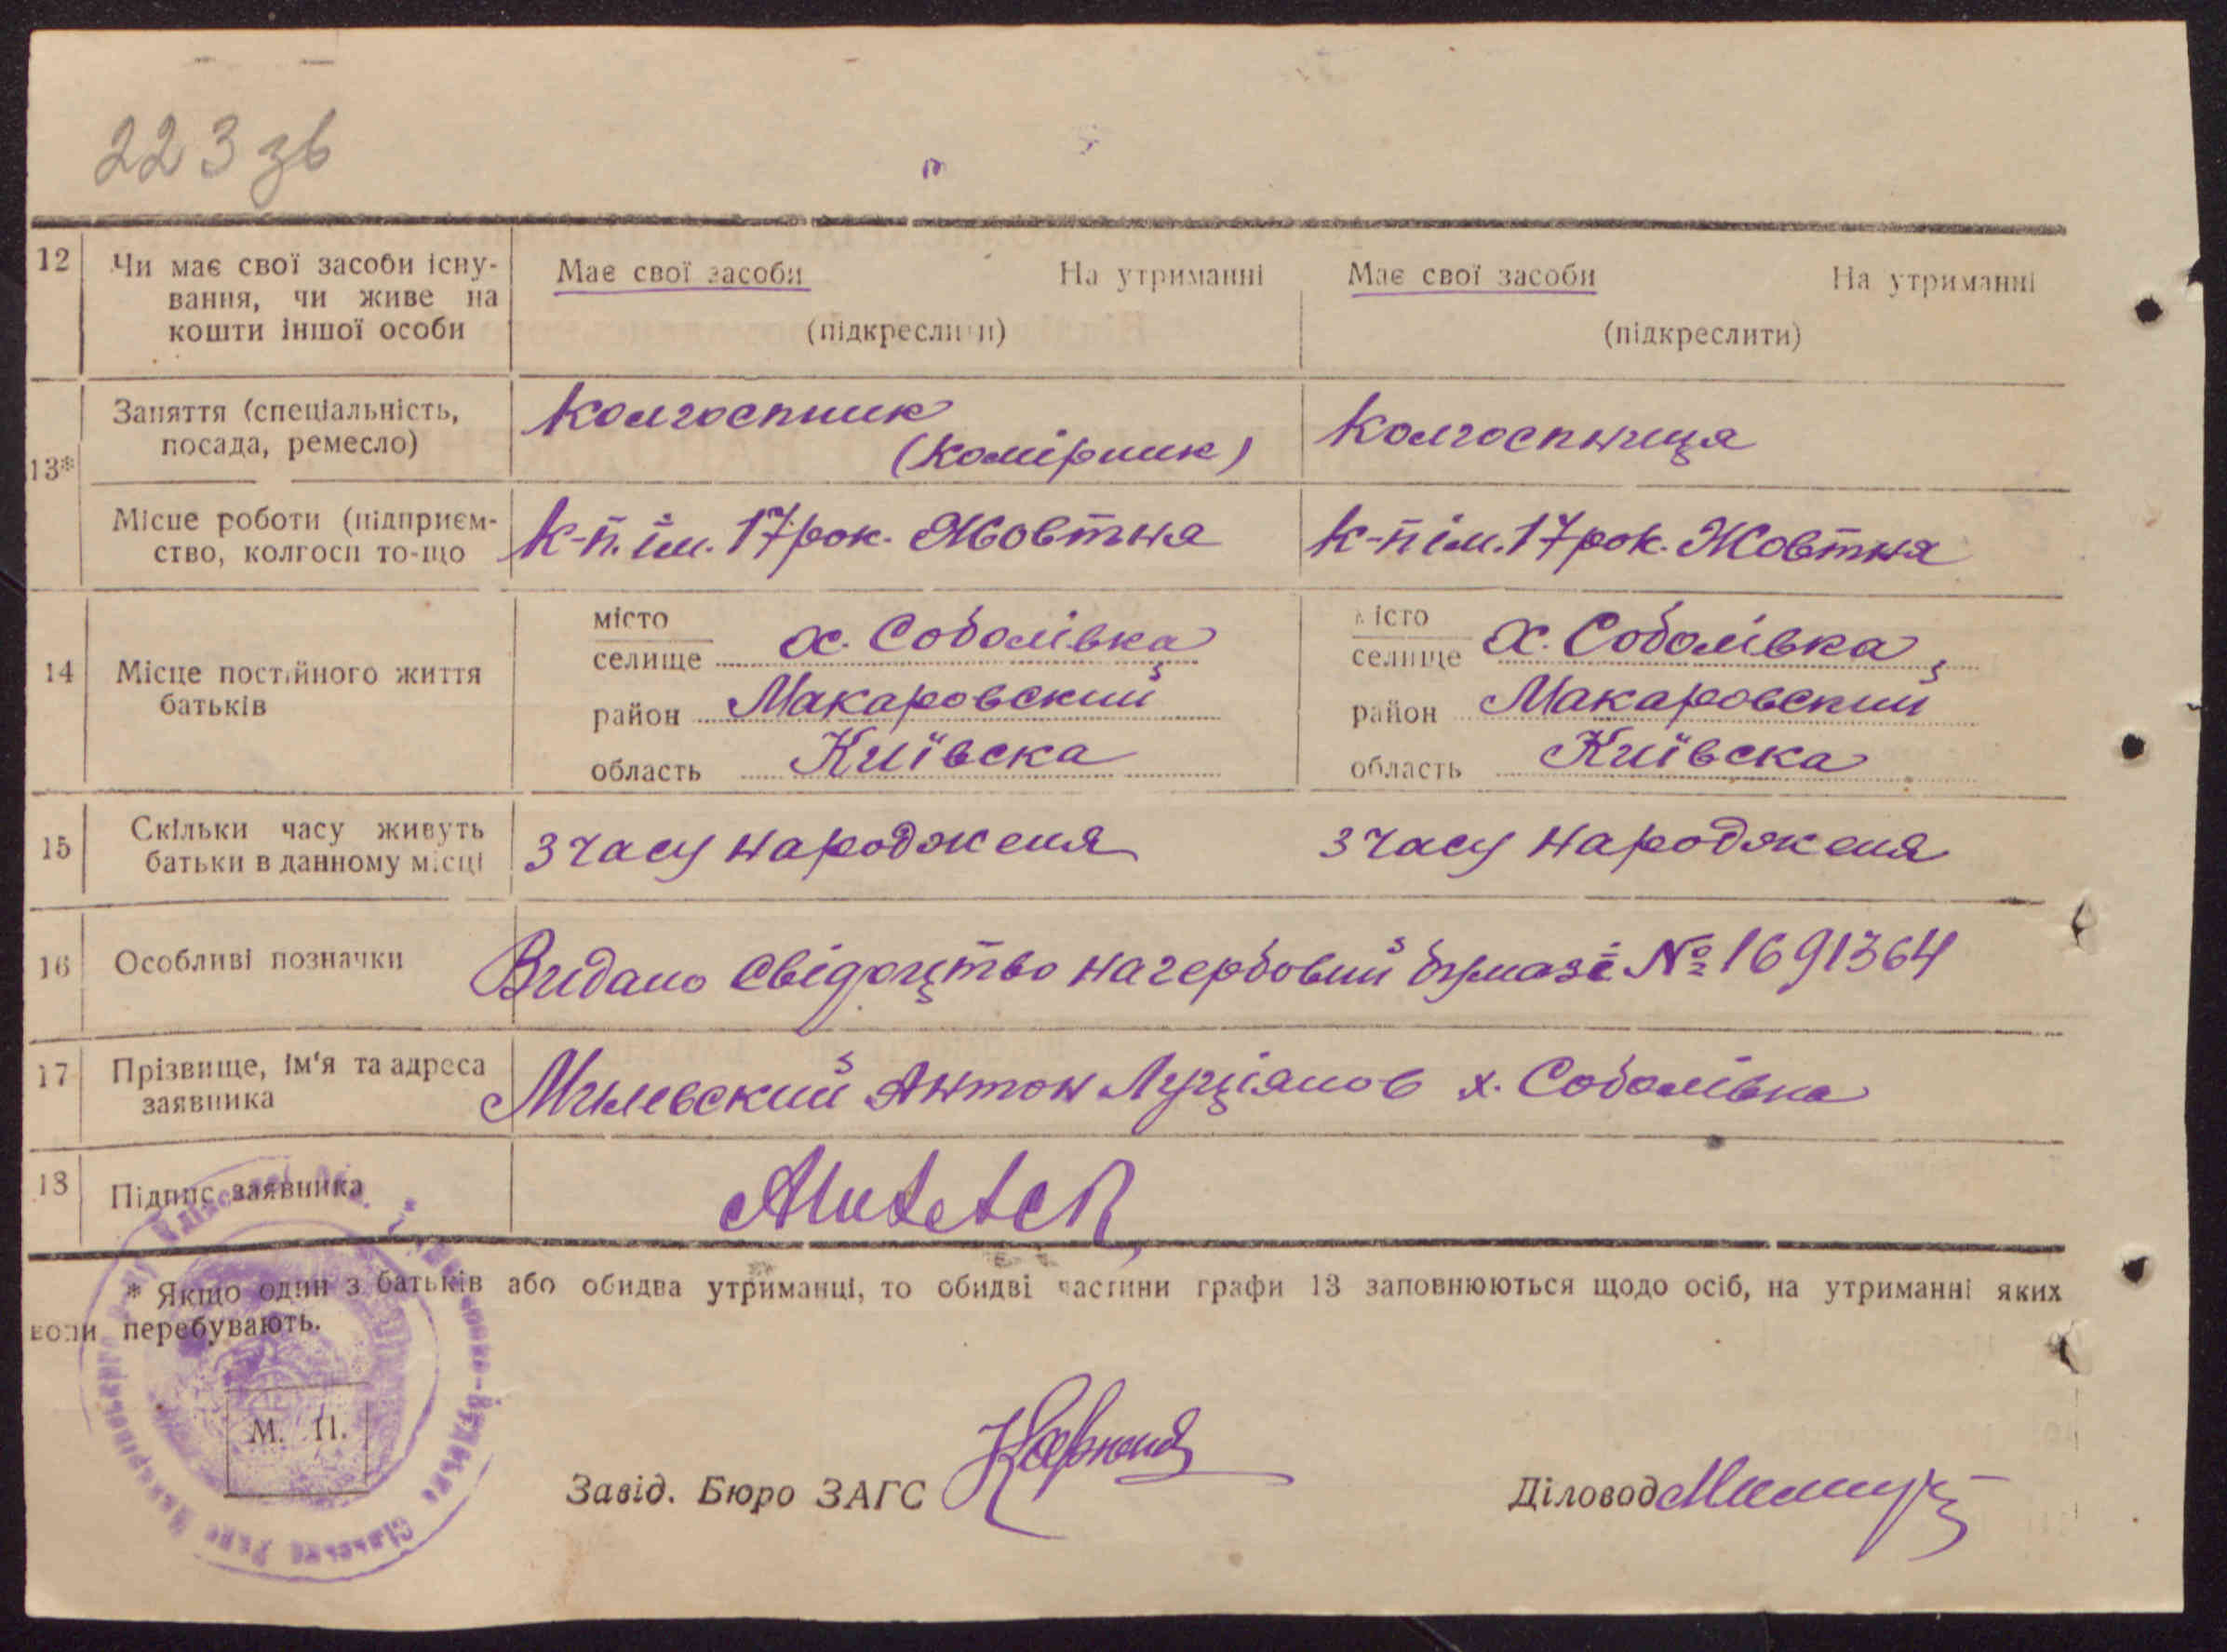 223 зв
12 Чи має свої засоби існу- Має свої засоби На утриманні Має свої засоби На утриманні
вання, чи живе на
кошти іншої особи (підкреслити) (підкреслити)
Заняття (спеціальність, Колгоспник Колгоспниця
посада, ремесло) (комірник)
13*
Місце роботи (підприєм- к-п. ім. 17 рок. Жовтня к-п ім. 17 рок. Жовтня
ство, колгосп то-що
місто місто
селище х. Соболівка селище х. Соболівка
14 Місце постійного життя
батьків
район Макаровский район Макаровский
область Київска область Київска
15 Скільки часу живуть з часу народженя з часу народженя
батьки в данному місці
16 Особливі позначки Видано свідоцтво на гербовий бумазі № 1691364
17 Прізвище, ім'я та адреса Милевский Антон Луціянов х. Соболівка
заявника
18 Підпис заявника
* Якщо один з батьків або обидва утриманці, то обидві частини графи 13 заповнюються щодо осіб, на утриманні яких
вони перебувають.
М. П.
Завід. Бюро ЗАГС Діловод